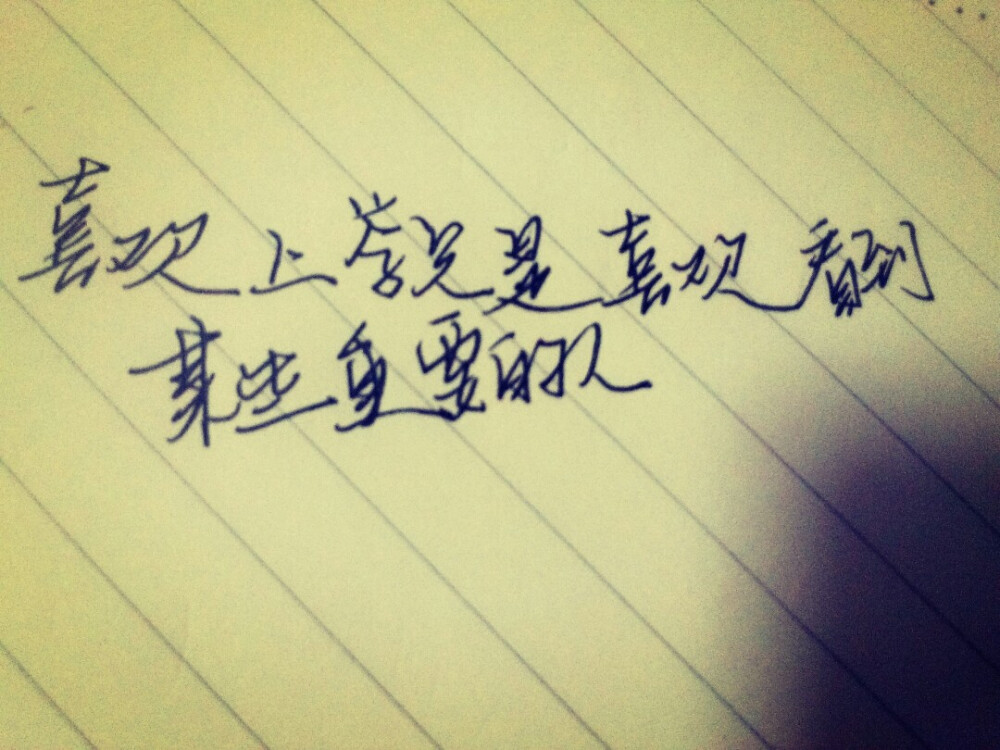 喜欢上学只是喜欢看到
某些重要的人